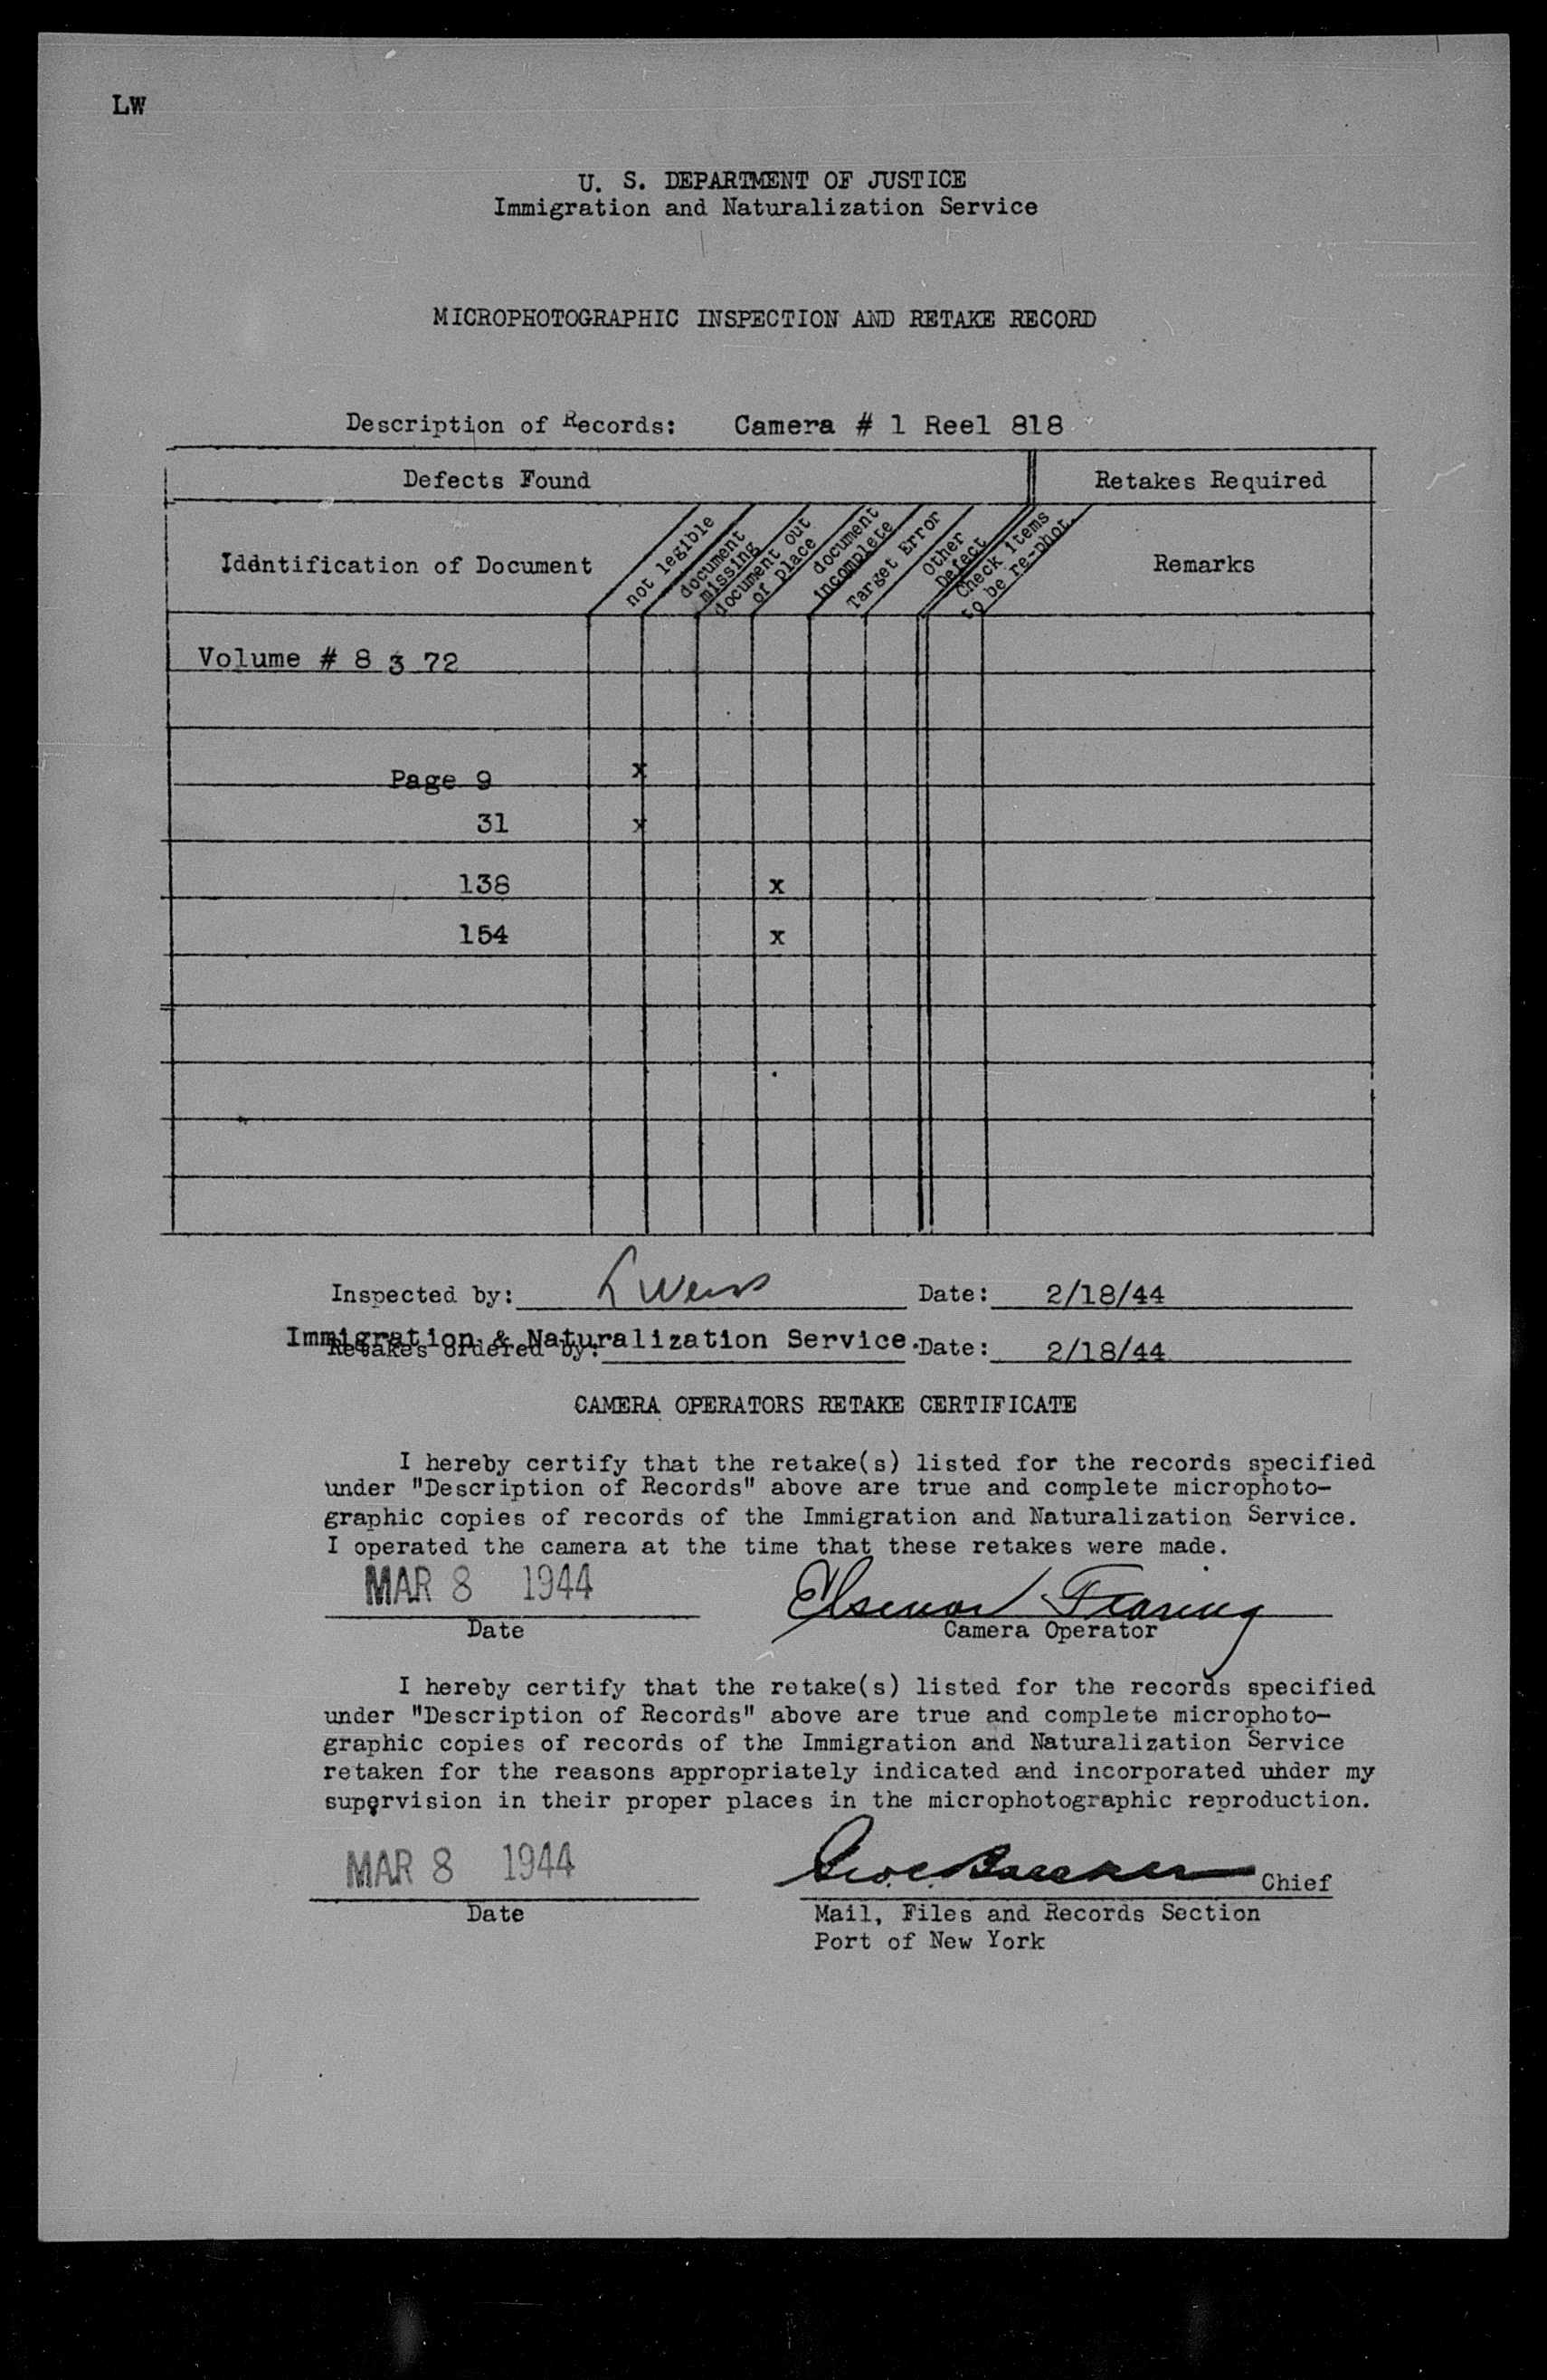 LW
U. S. DEPARTMENT OF JUSTICE
Immigration and Naturalization Service
MICROPHOTOGRAPHIC INSPECTION AND RETAKE RECORD
Description of Records: Camera # 1 Reel 818
Defects Found
Retakes Required
Identification of Document
not legible
document missing
document out of place
document incomplete
Target Error
Other Defect
Check items to be re-phot.
Remarks
Volume # 8 3 72
Page 9 x
31 x
138 x
154 x
Inspected by: L Weiss Date: 2/18/44
Immigration & Naturalization Service.
Retakes ordered by: Date: 2/18/44
CAMERA OPERATORS RETAKE CERTIFICATE
I hereby certify that the retake(s) listed for the records specified
under "Description of Records" above are true and complete microphoto-
graphic copies of records of the Immigration and Naturalization Service.
I operated the camera at the time that these retakes were made.
MAR 8 1944
Date
Camera Operator
I hereby certify that the retake(s) listed for the records specified
under "Description of Records" above are true and complete microphoto-
graphic copies of records of the Immigration and Naturalization Service
retaken for the reasons appropriately indicated and incorporated under my
supervision in their proper places in the microphotographic reproduction.
MAR 8 1944
Chief
Date
Mail, Files and Records Section
Port of New York